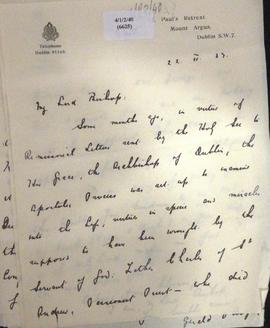 4/1/2/40
(6625)
Paul's Retreat
Mount Argus,
Dublin S.W.7.
Telephone
My Lord Bishop:
Some months ago, in virtue of
Remissorial Letters sent by the Holy See to
His Grace, the Archbishop of Dublin, the
Apostolic Process was set up to examine
into the life, virtues in specie and miracles
supposed to have been wrought by the
Servant of God: Father Charles of St
Andrew, Passionist Priest - who died